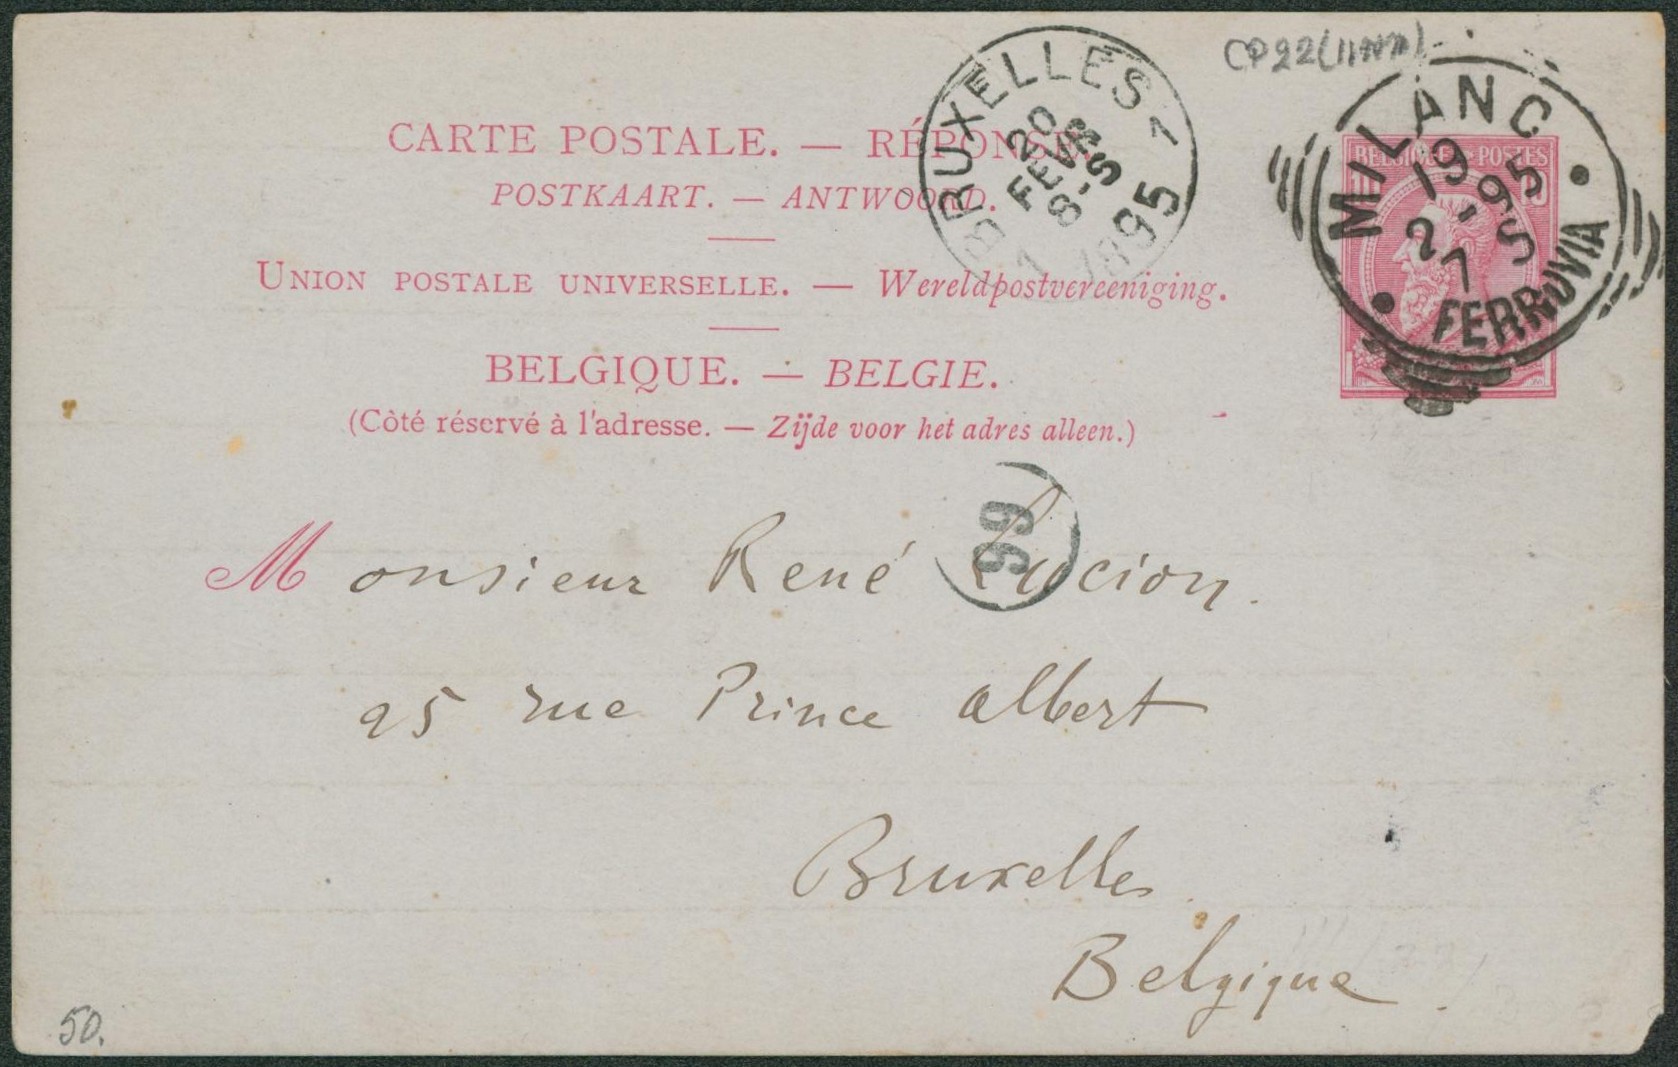 CP22(
BRUXELLES 1
20
FEVR
8-S
1895
MILANO
19
2-95
7 S
FERROVIA
BELGIQUE POSTES
CARTE POSTALE. — RÉPONSE.
POSTKAART. — ANTWOORD.
UNION POSTALE UNIVERSELLE. — Wereldpostvereeniging.
BELGIQUE. — BELGIE.
(Côté réservé à l'adresse. — Zijde voor het adres alleen.)
99
Monsieur René Lucion.
25 rue Prince Albert
Bruxelles
Belgique
50.